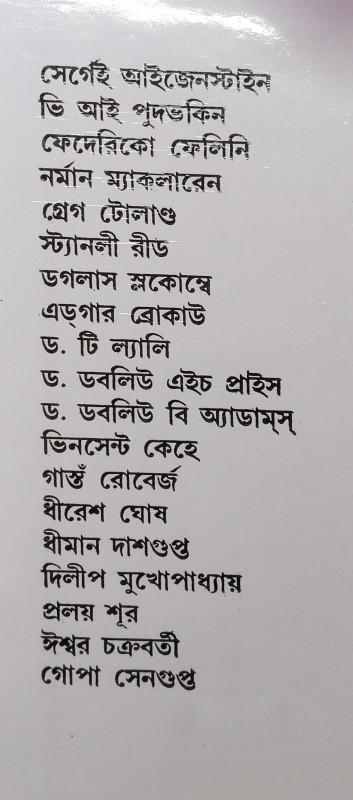 সের্গেই আইজেনস্টাইন
ভি আই পুদভকিন
ফেদেরিকো ফেলিনি
নর্মান ম্যাকলারেন
গ্রেগ টোলাণ্ড
স্ট্যানলী রীড
ডগলাস স্লকোম্বে
এড্গার ব্রোকাউ
ড. টি ল্যালি
ড. ডবলিউ এইচ প্রাইস
ড. ডবলিউ বি অ্যাডাম্স্
ভিনসেন্ট কেহে
গাস্তঁ রোবের্জ
ধীরেশ ঘোষ
ধীমান দাশগুপ্ত
দিলীপ মুখোপাধ্যায়
প্রলয় শূর
ঈশ্বর চক্রবর্তী
গোপা সেনগুপ্ত